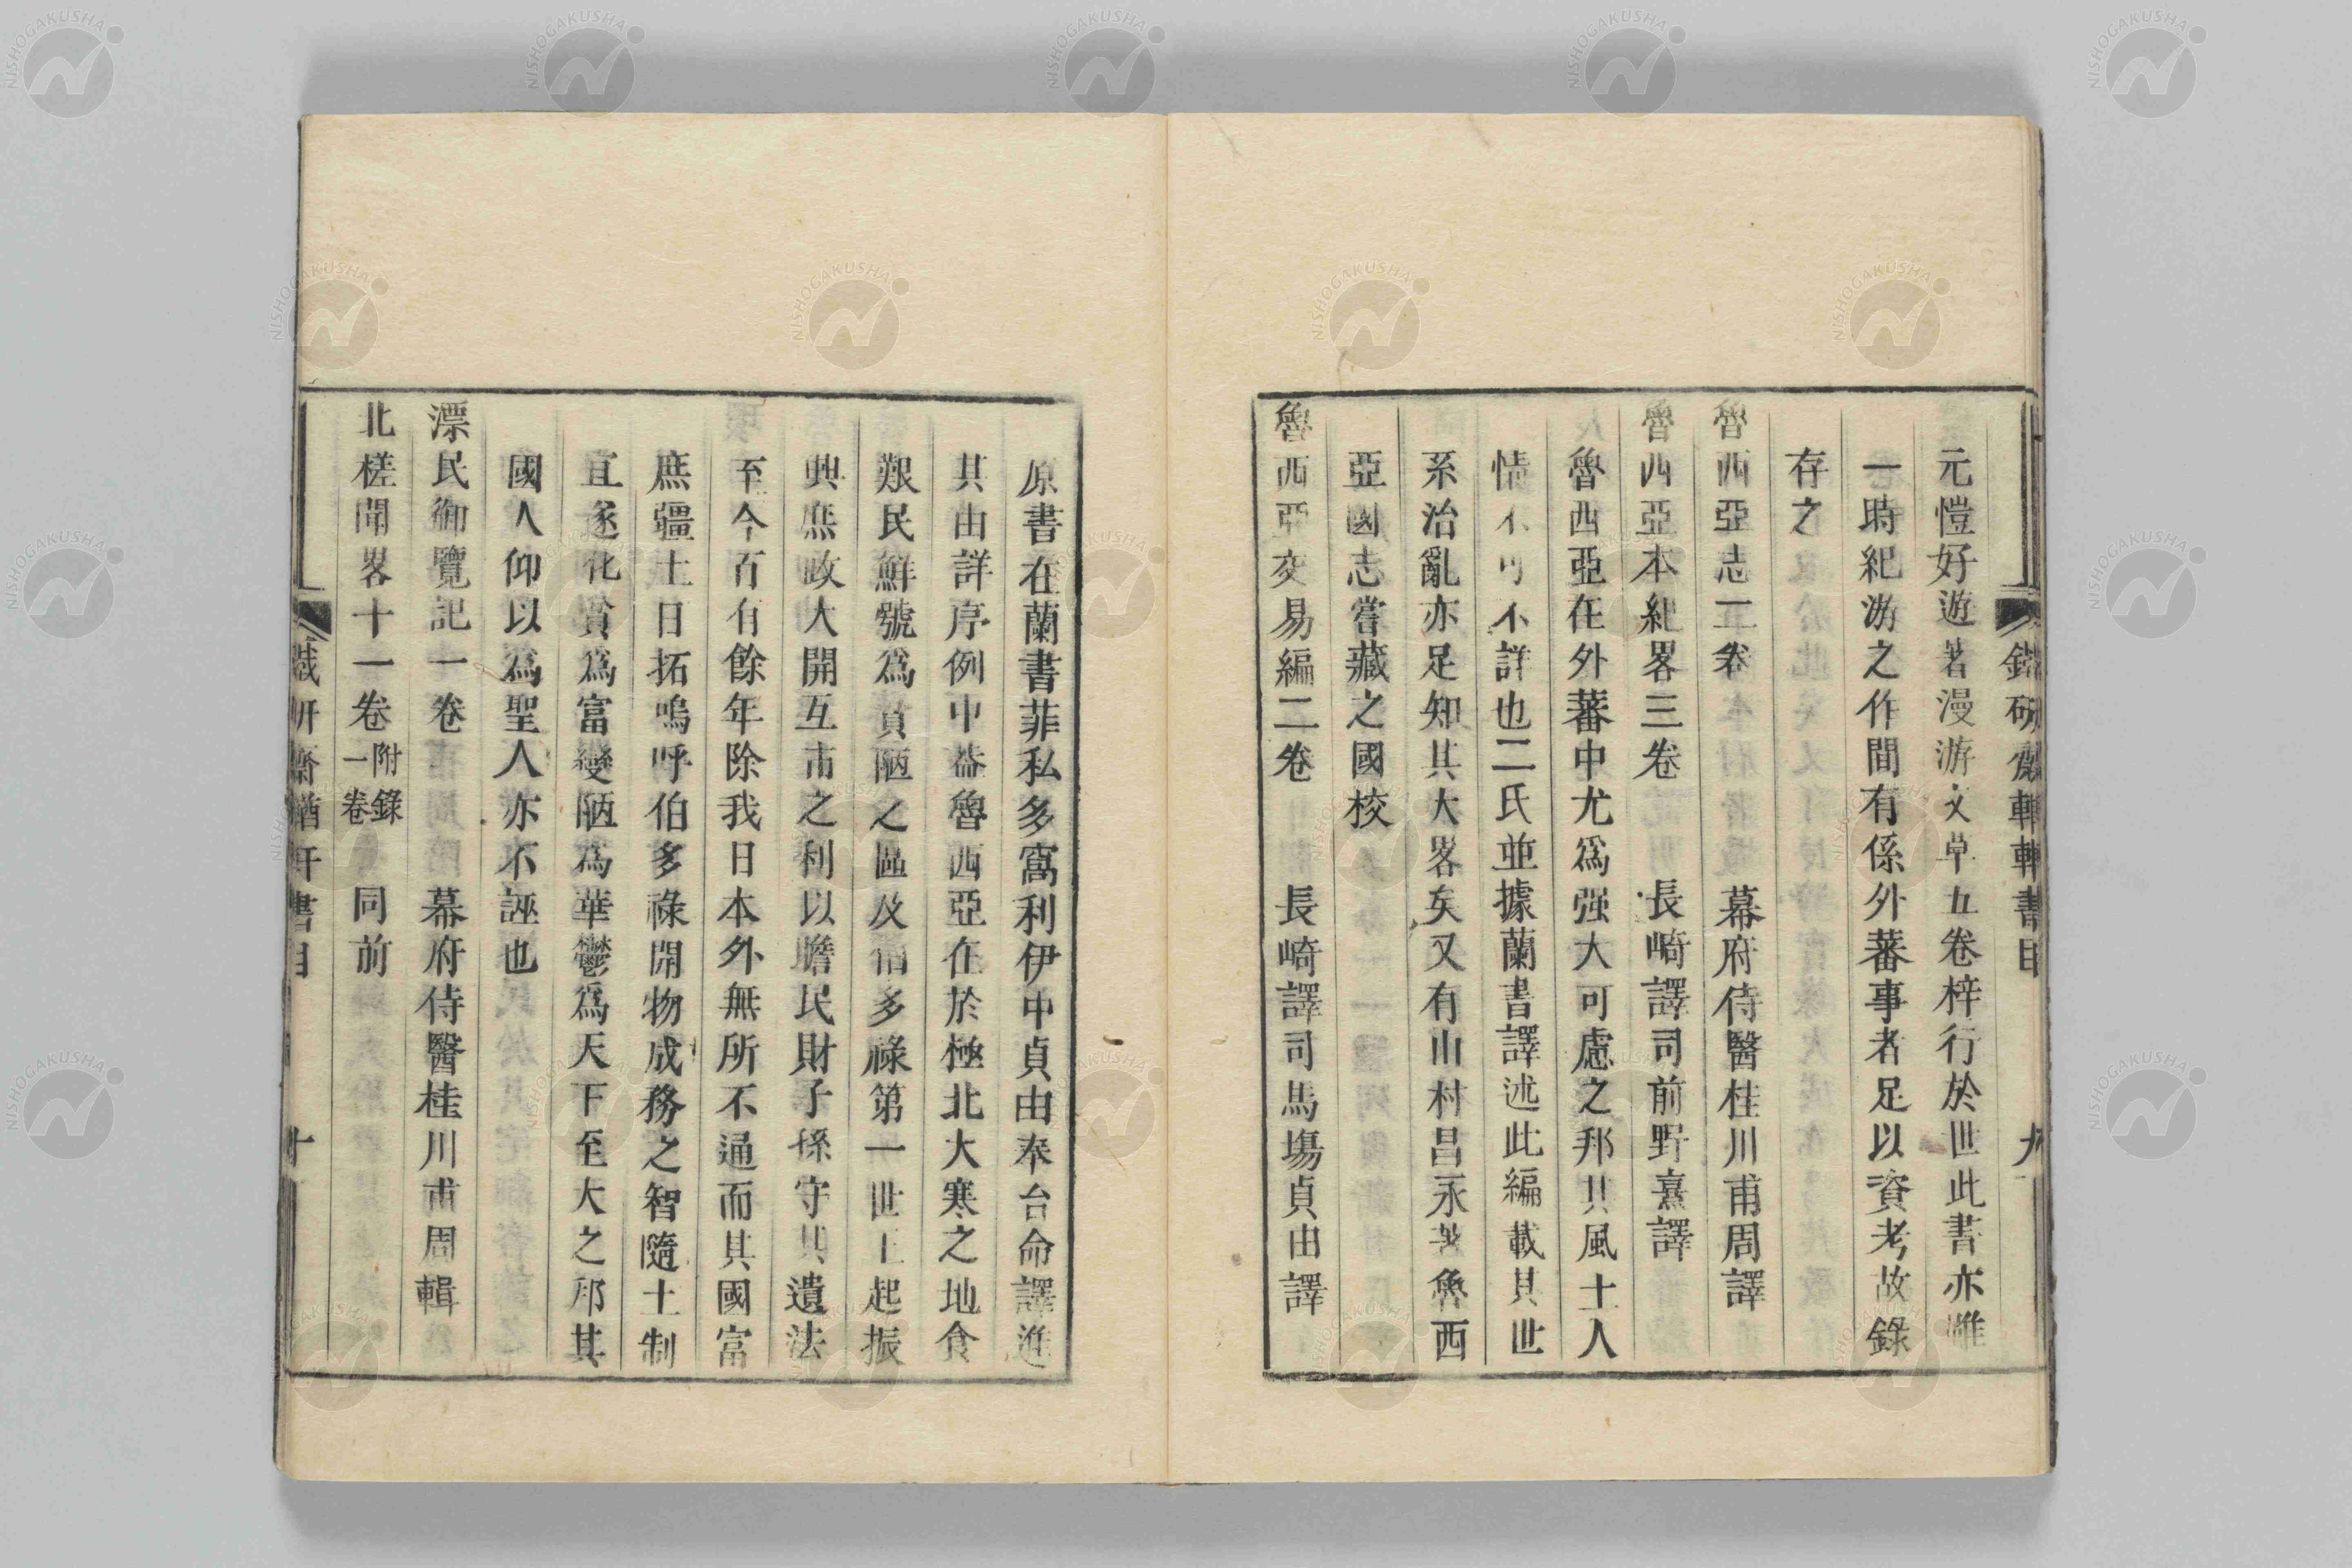 元愷好遊著漫游文草五卷梓行於世此書亦雖
一時紀游之作間有係外蕃事者足以資考故錄
存之
魯西亞志二卷 幕府侍醫桂川甫周譯
魯西亞本紀畧三卷 長崎譯司前野熹譯
魯西亞在外蕃中尤爲强大可慮之邦其風土人
情不可不詳也二氏並據蘭書譯述此編載其世
系治亂亦足知其大畧矣又有山村昌永著魯西
亞國志嘗藏之國校
魯西亞交易編二卷 長崎譯司馬塲貞由譯
原書在蘭書菲私多窩利伊中貞由奉台命譯進
其由詳序例中葢魯西亞在於極北大寒之地食
艱民鮮號爲貧陋之區及伯多祿第一世上起振
興庶政大開互市之利以瞻民財子孫守其遺法
至今百有餘年除我日本外無所不通而其國富
庶疆土日拓嗚呼伯多祿開物成務之智隨土制
宜遂化貧爲富變陋爲華鬱爲天下至大之邦其
國人仰以爲聖人亦不誣也
漂民御覽記一卷 幕府侍醫桂川甫周輯
北槎聞畧十一卷附錄一卷 同前
研齋輶軒書目 九
研齋輶軒書目 十
NISHOGAKUSHA